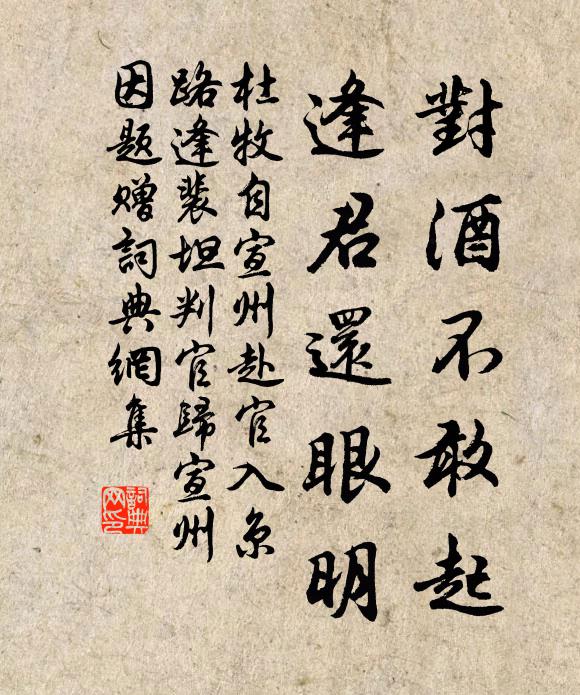 對酒不敢起
逢君還眼明
杜牧自宣州赴官入京
路逢裴坦判官歸宣州
因題贈詞典網集
詞典
网印